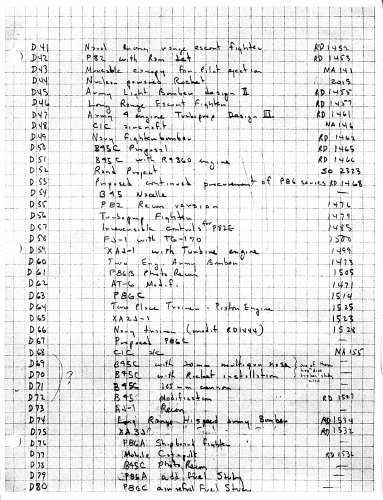 D41 Naval Long range escort fighter RD 1452
D42 P82 with Ram Jet RD 1453
D43 Moveable canopy for Pilot ejection NA 141
D44 Nuclear powered Rocket 2015
D45 Army Light Bomber design II RD 1455
D46 Long Range Escort Fighter RD 1457
D47 Army 4 engine Turboprop Design III RD 1461
D48 CIC aircraft NA 146
D49 Navy Fighter bomber RD 1462
D50 B45C Proposal RD 1465
D51 B45C with R4360 engine RD 1466
D52 Rand Project SO 2323
D53 Proposed continued procurement of P86 series RD 1468
D54 B45 Nacelle —
D55 P82 Recon version 1476
D56 Turboprop Fighter 1479
D57 Irreversible controls for P82E 1485
D58 FJ-1 with TG-190 1500
D59 XAJ-1 with Turbine engine 1499
D60 Two Eng. Army Bomber 1473
D61 P86B Photo Recon 1505
D62 AT-6 Modif. 1471
D63 P86C 1514
D64 Two Place Trainer - Piston Engine 1525
D65 XA2J-1 1523
D66 Navy trainer (modif RD1444) 1528
D67 Proposed P86C —
D68 CIC A/C NA 155
D69 B45C with 20mm multigun nose
D70 B45C with Rocket installation —
D71 ? B45C 105 mm cannon —
D72 B45 Modification RD 1507
D73 AJ-1 Recon —
D74 Long Range Hispeed Army Bomber RD 1534
D75 XA2J RD 1532
D76 P86A Shipboard Fighter
D77 Mobile Catapult RD 1536
D78 B45C Photo Recon —
D79 P86A add. Fuel Study —
D80 P86C Fuel Study —